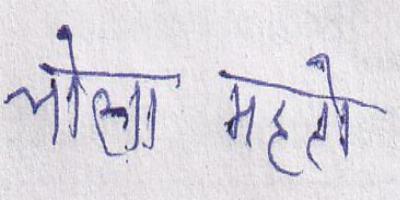 भोला महतो